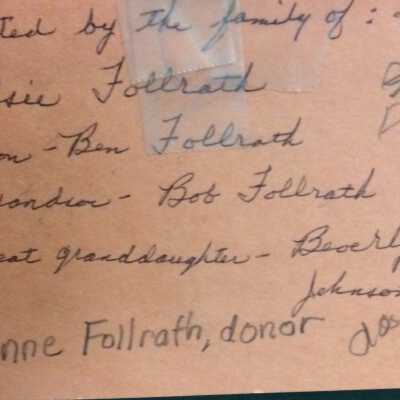 ted by the family of :
sie Follrath
on - Ben Follrath
andson - Bob Follrath
eat granddaughter - Beverly
Johnson
nne Follrath, donor